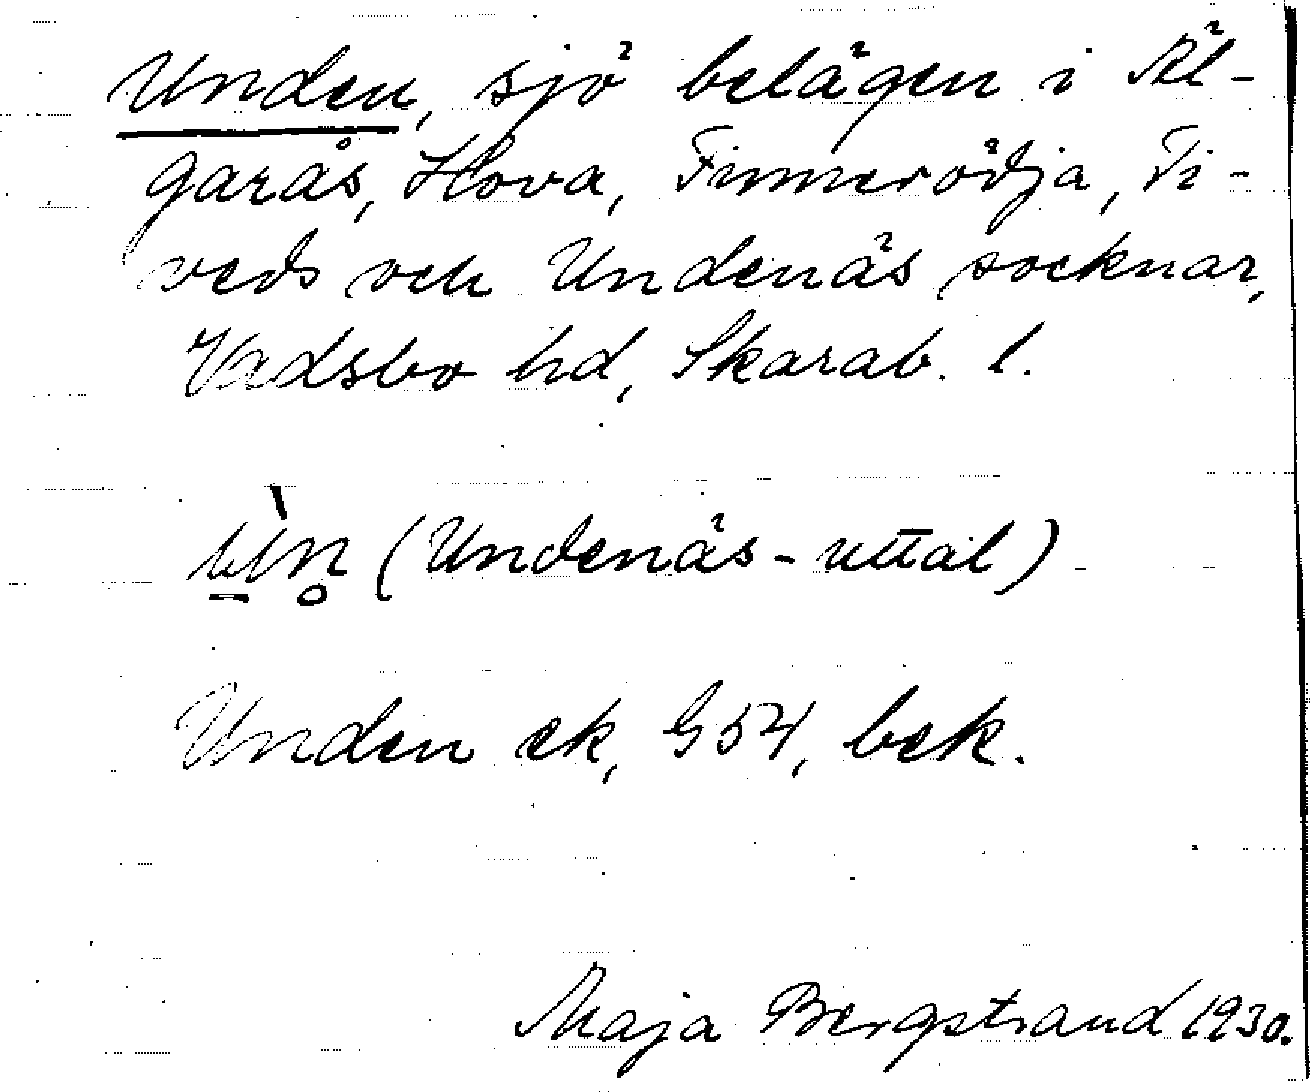 Unden, sjö belägen i Äl-
garås, Hova, Finnerödja, Ti-
veds och Undenäs socknar,
Vadsbo hd, Skarab. l.
(Undenäs-uttal)
Unden ek, G54, bek.
Maja Bergstrand 1930.